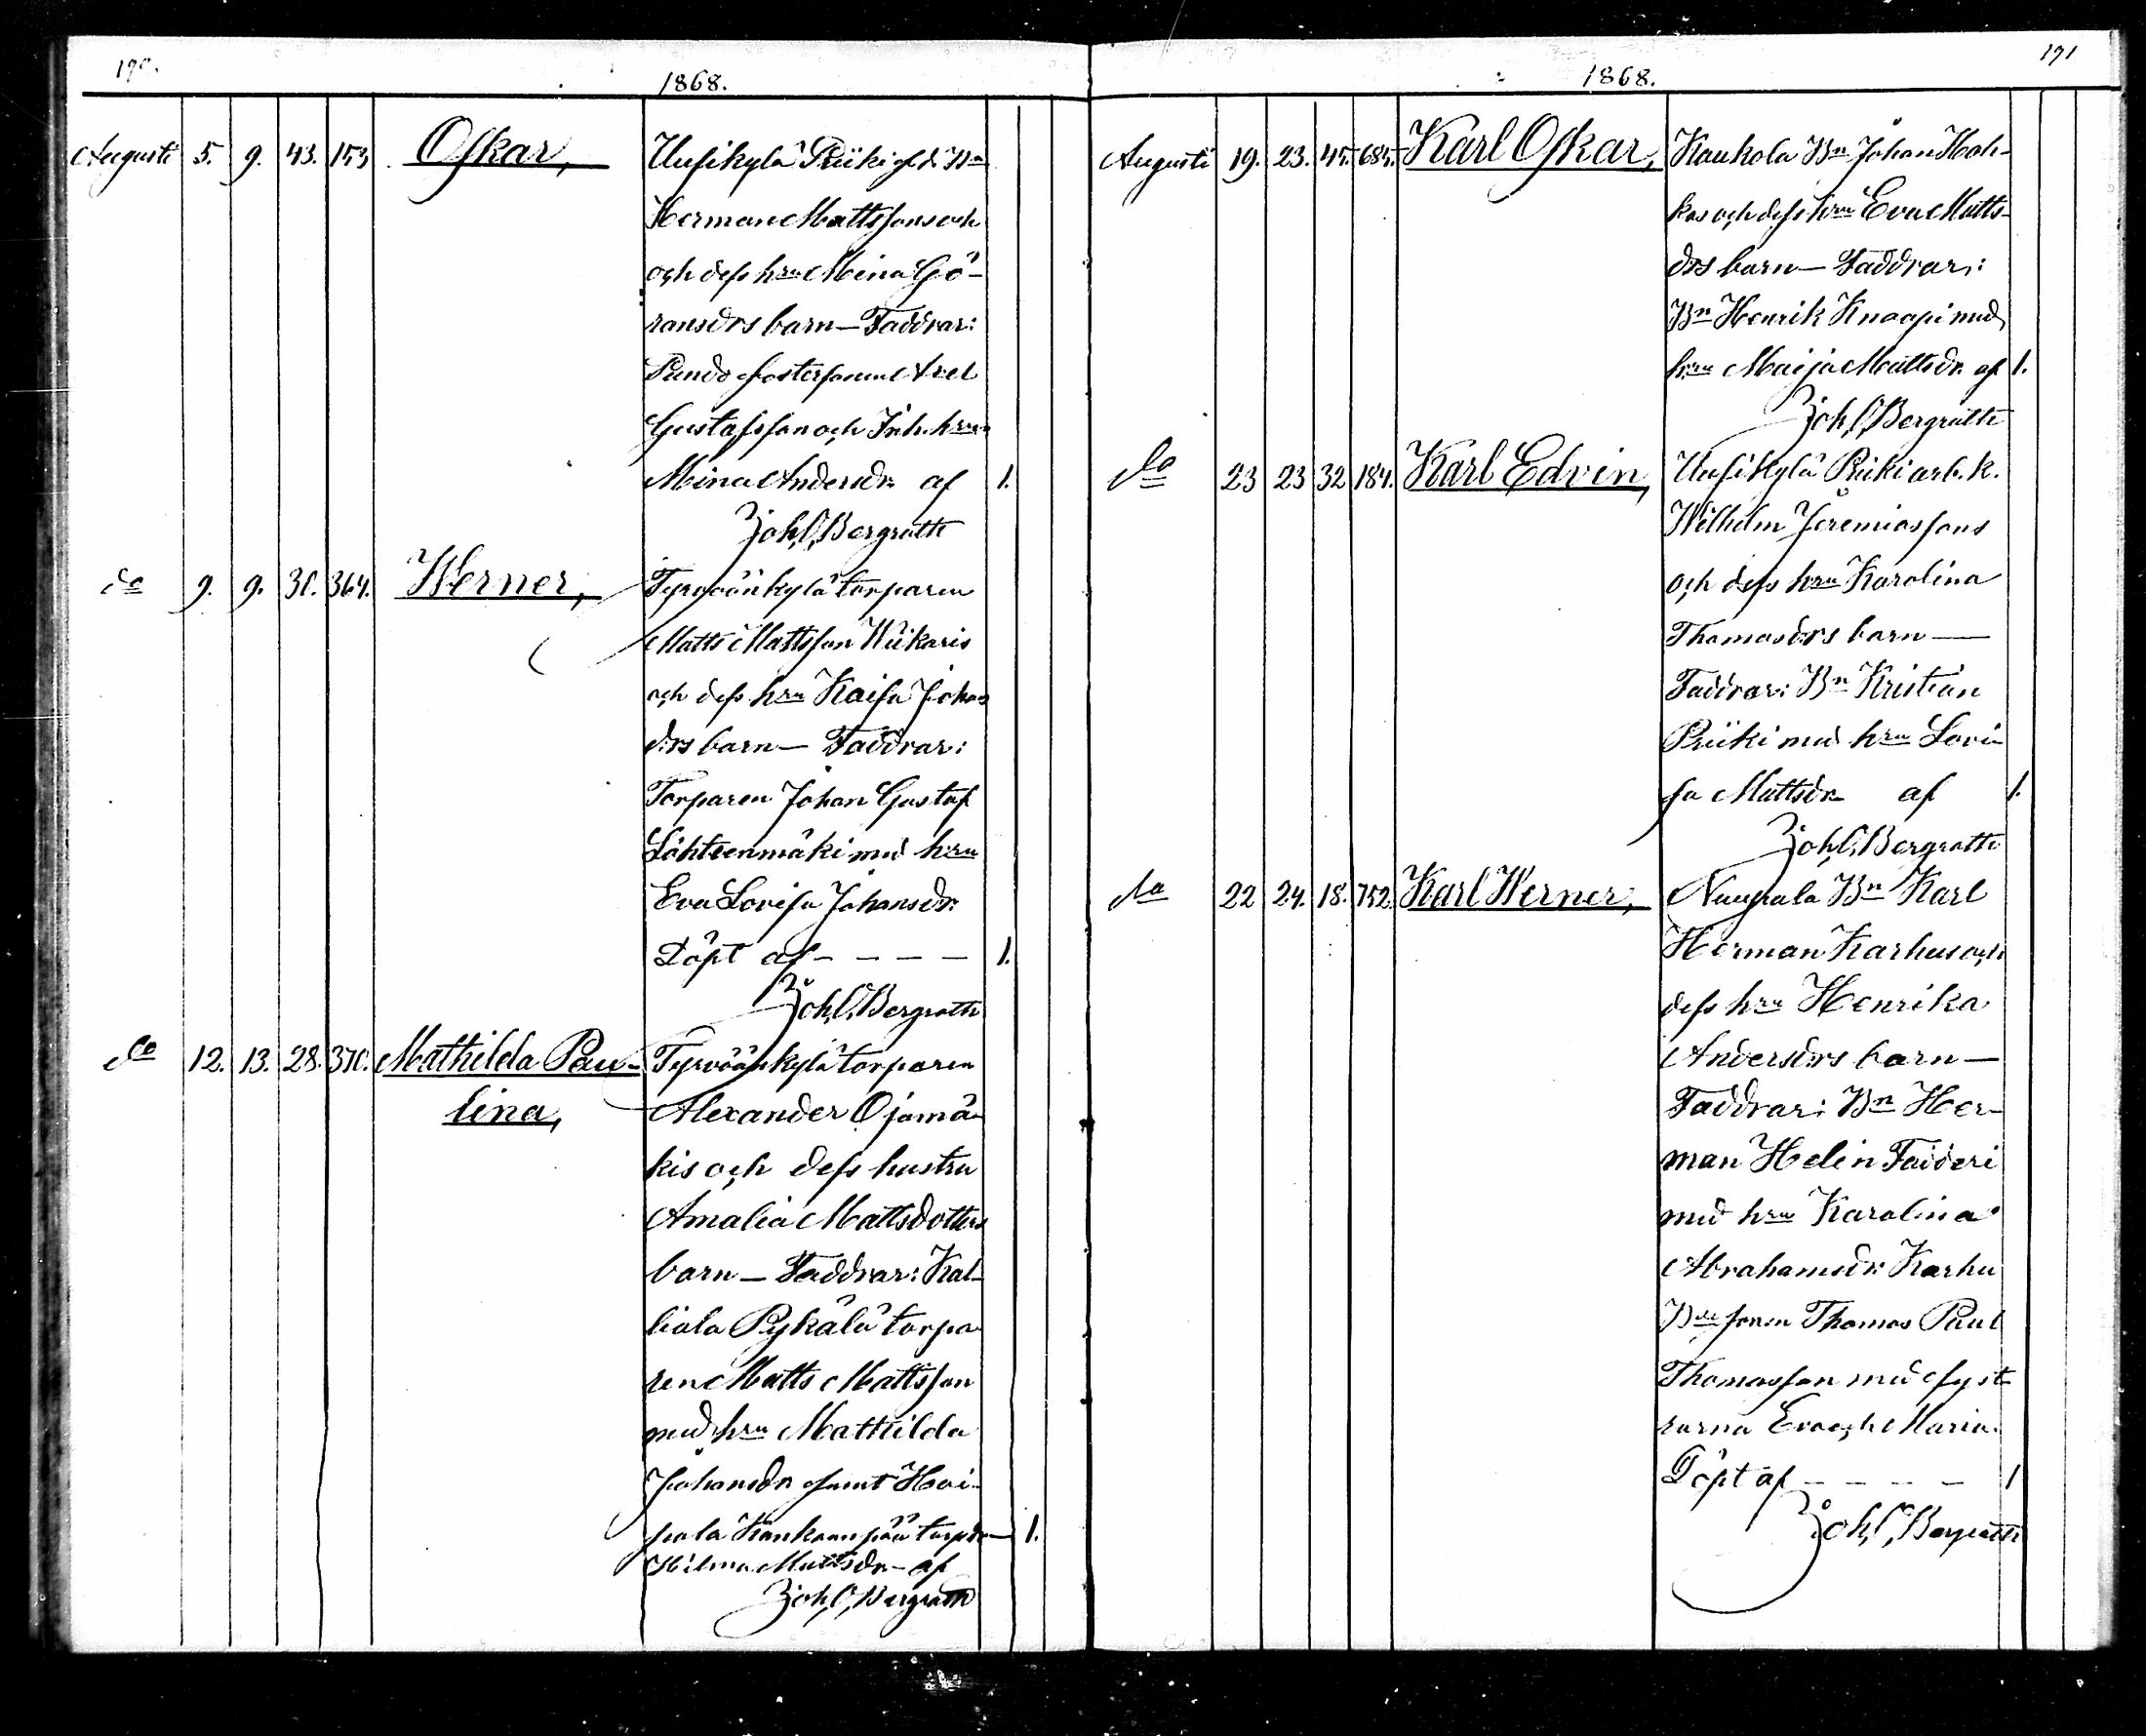 170.
1868.
Augusti 5. 9. 43. 153 Oskar, Uusikylä Priiki
Herman Mattssons och
och dess hru Mina Gö-
ransdrs barn — Faddrar:
fostersonen Axel
Gustafsson och Inh. hrun
Mina Andersdr. af 1.
Joh. O. Bergroth
do 9. 9. 31. 364. Werner, Tyrväänkylä torparen
Matts Mattsson Wiikaris
och dess hru Kaisa Johans
drs barn — Faddrar:
Torparen Johan Gustaf
Lähteenmäki med hru
Eva Lovisa Johansdr.
Döpt af - - - - 1.
Joh. O. Bergroth
do 12. 13. 28. 370. Mathilda Pau- Tyrväänkylä torparen
lina, Alexander Ojamä-
kis och dess hustru
Amalia Mattsdotters
barn — Faddrar: Kal-
liala Pykälä torpa
ren Matts Mattsson
med hru Mathilda
Johansdr. samt Hoi-
pola Kankaanpää torpdr — 1.
Hilma Mattsdr — af
Joh. O. Bergroth
171
1868.
Augusti 19. 23. 45. 684. Karl Oskar, Kaukola Bn Johan Hoh-
kos och dess hru Eva Matts-
drs barn — Faddrar:
Bn Henrik Knaapi med
hru Maija Mattsdr. af 1.
Joh. O. Bergroth
do 23 23 32 184. Karl Edvin, Uusikylä Priiki arb. k.
Wilhelm Jeremiassons
och dess hru Karolina
Thomasdrs barn —
Faddrar: Bn Kristian
Priiki med hru Lovi-
sa Mattsdr — af 1.
Joh. O. Bergroth
do 22 24. 18. 752. Karl Werner, Nuupala Bn Karl
Herman Karhus och
dess hru Henrika
Andersdrs barn —
Faddrar: Bn Her-
man Helin Fadderi
med hru Karolina
Abrahamsdr. Karhu
Bde sonen Thomas Paul
Thomasson med syst
rarna Eva och Maria.
Döpt af - - - - 1
Joh. O. Bergroth